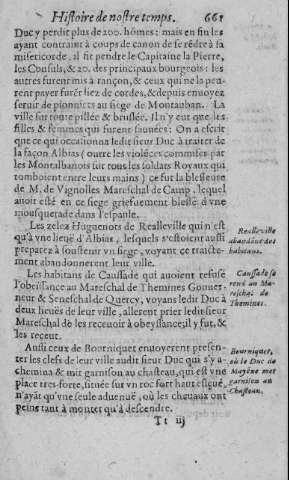 Histoire de nostre temps. 661
Duc y perdit plus de 200. hõmes: mais en fin les
ayant contraint à coups de canon de se rẽdre à sa
misericorde, il fit pendre le Capitaine la Pierre,
les Consuls, & 20. des principaux bourgeois: les
autres furent mis à rançon, & ceux qui ne la peu-
rent payer furẽt liez de cordes, & depuis envoyez
seruir de pionniers au siege de Montauban. La
ville fut toute pillée & bruslée. Il n'y eut que les
filles & femmes qui furent sauuées: On a escrit
que ce qui occasionna ledit sieur Duc à traiter de
la façon Albias (outre les violẽces commises par
les Montalbanois sur tous les soldats Royaux qui
tomboient entre leurs mains) ce fut la blesseure
de M. de Vignolles Mareschal de Camp, lequel
auoit esté en ce siege griefuement blessé d'vne
mousquetade dans l'espaule.
Les zelez Huguenots de Realleville qui n'est
qu'à vne lieuë d'Albias, lesquels s'estoient aussi
preparez à soustenir vn siege, voyant ce traicte-
ment abandonnerent leur ville.
Realleville
abandonné des
habitans.
Les habitans de Caussade qui auoient refusé
l'obeïssance au Mareschal de Themines Gouuer-
neur & Seneschal de Quercy, voyans ledit Duc à
deux lieuës de leur ville, allerent prier ledit sieur
Mareschal de les receuoir à obeyssance, il y fut, &
les receut.
Caussade se
rend au Ma-
reschal de
Themines.
Aussi ceux de Bourniquet enuoyerent presen-
ter les clefs de leur ville audit sieur Duc qui s'y a-
chemina & mit garnison au chasteau, qui est vne
place tres-forte, située sur vn roc fort haut esleué,
n'ayãt qu'vne seule aduenuë, où les cheuaux ont
peine tant à monter qu'à descendre.
Bourniquet,
où le Duc de
Mayẽne met
garnison au
Chasteau.
Tt iij